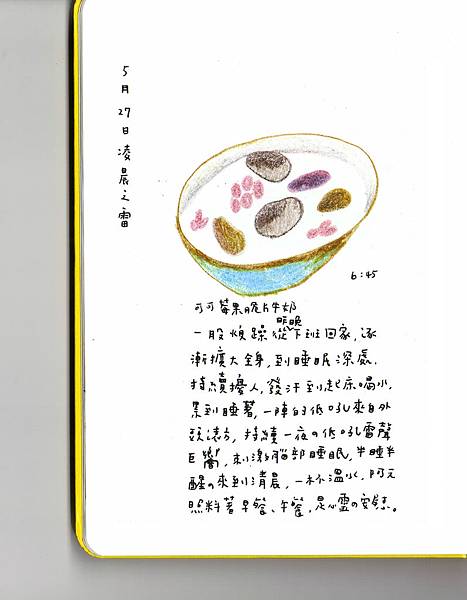 5月27日凌晨之雷
6:45
可可莓果脆片牛奶
一股煩躁從昨晚下班回家，逐
漸擴大全身，到睡眠深處，
持續擾人，發汗到起床喝水，
累到睡著，一陣的低吼來自外
頭遠方，持續一夜の低吼雷聲
巨響，刺激腦部睡眠，半睡半
醒の來到清晨，一杯溫水，阿元
照料著早餐、午餐，是心靈の安慰。